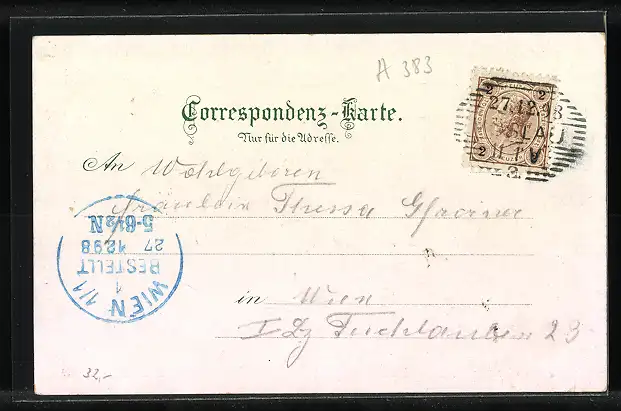 A 383
Correspondenz-Karte.
Nur für die Adresse.
2 2
27.12.98
2 2
An Wohlgeboren
Fräulein Theresa
in Wien
I Bz Tuchlauben 23
WIEN 1/1
1
BESTELLT
27 12 98
5-6½N
32,-